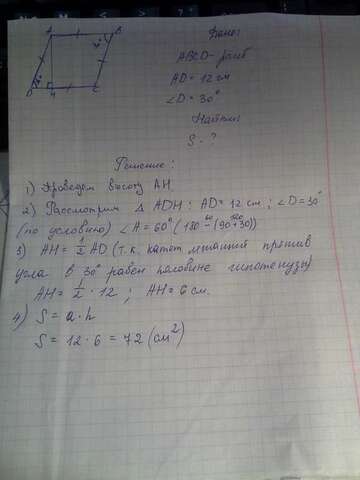 A
B
D
H
C
30°
Дано:
ABCD - ромб
AD = 12 см
∠D = 30°
Найти:
S - ?
Решение:
1) Проведем высоту AH.
2) Рассмотрим △ ADH : AD = 12 см ; ∠D = 30°
(по условию) ∠A = 60° (180 - (90 + 30))
60 120
3) AH = 1/2 AD (т.к. катет лежащий против
угла в 30° равен половине гипотенузы)
AH = 1/2 · 12 ; AH = 6 см.
4) S = a · h
S = 12 · 6 = 72 (см²)